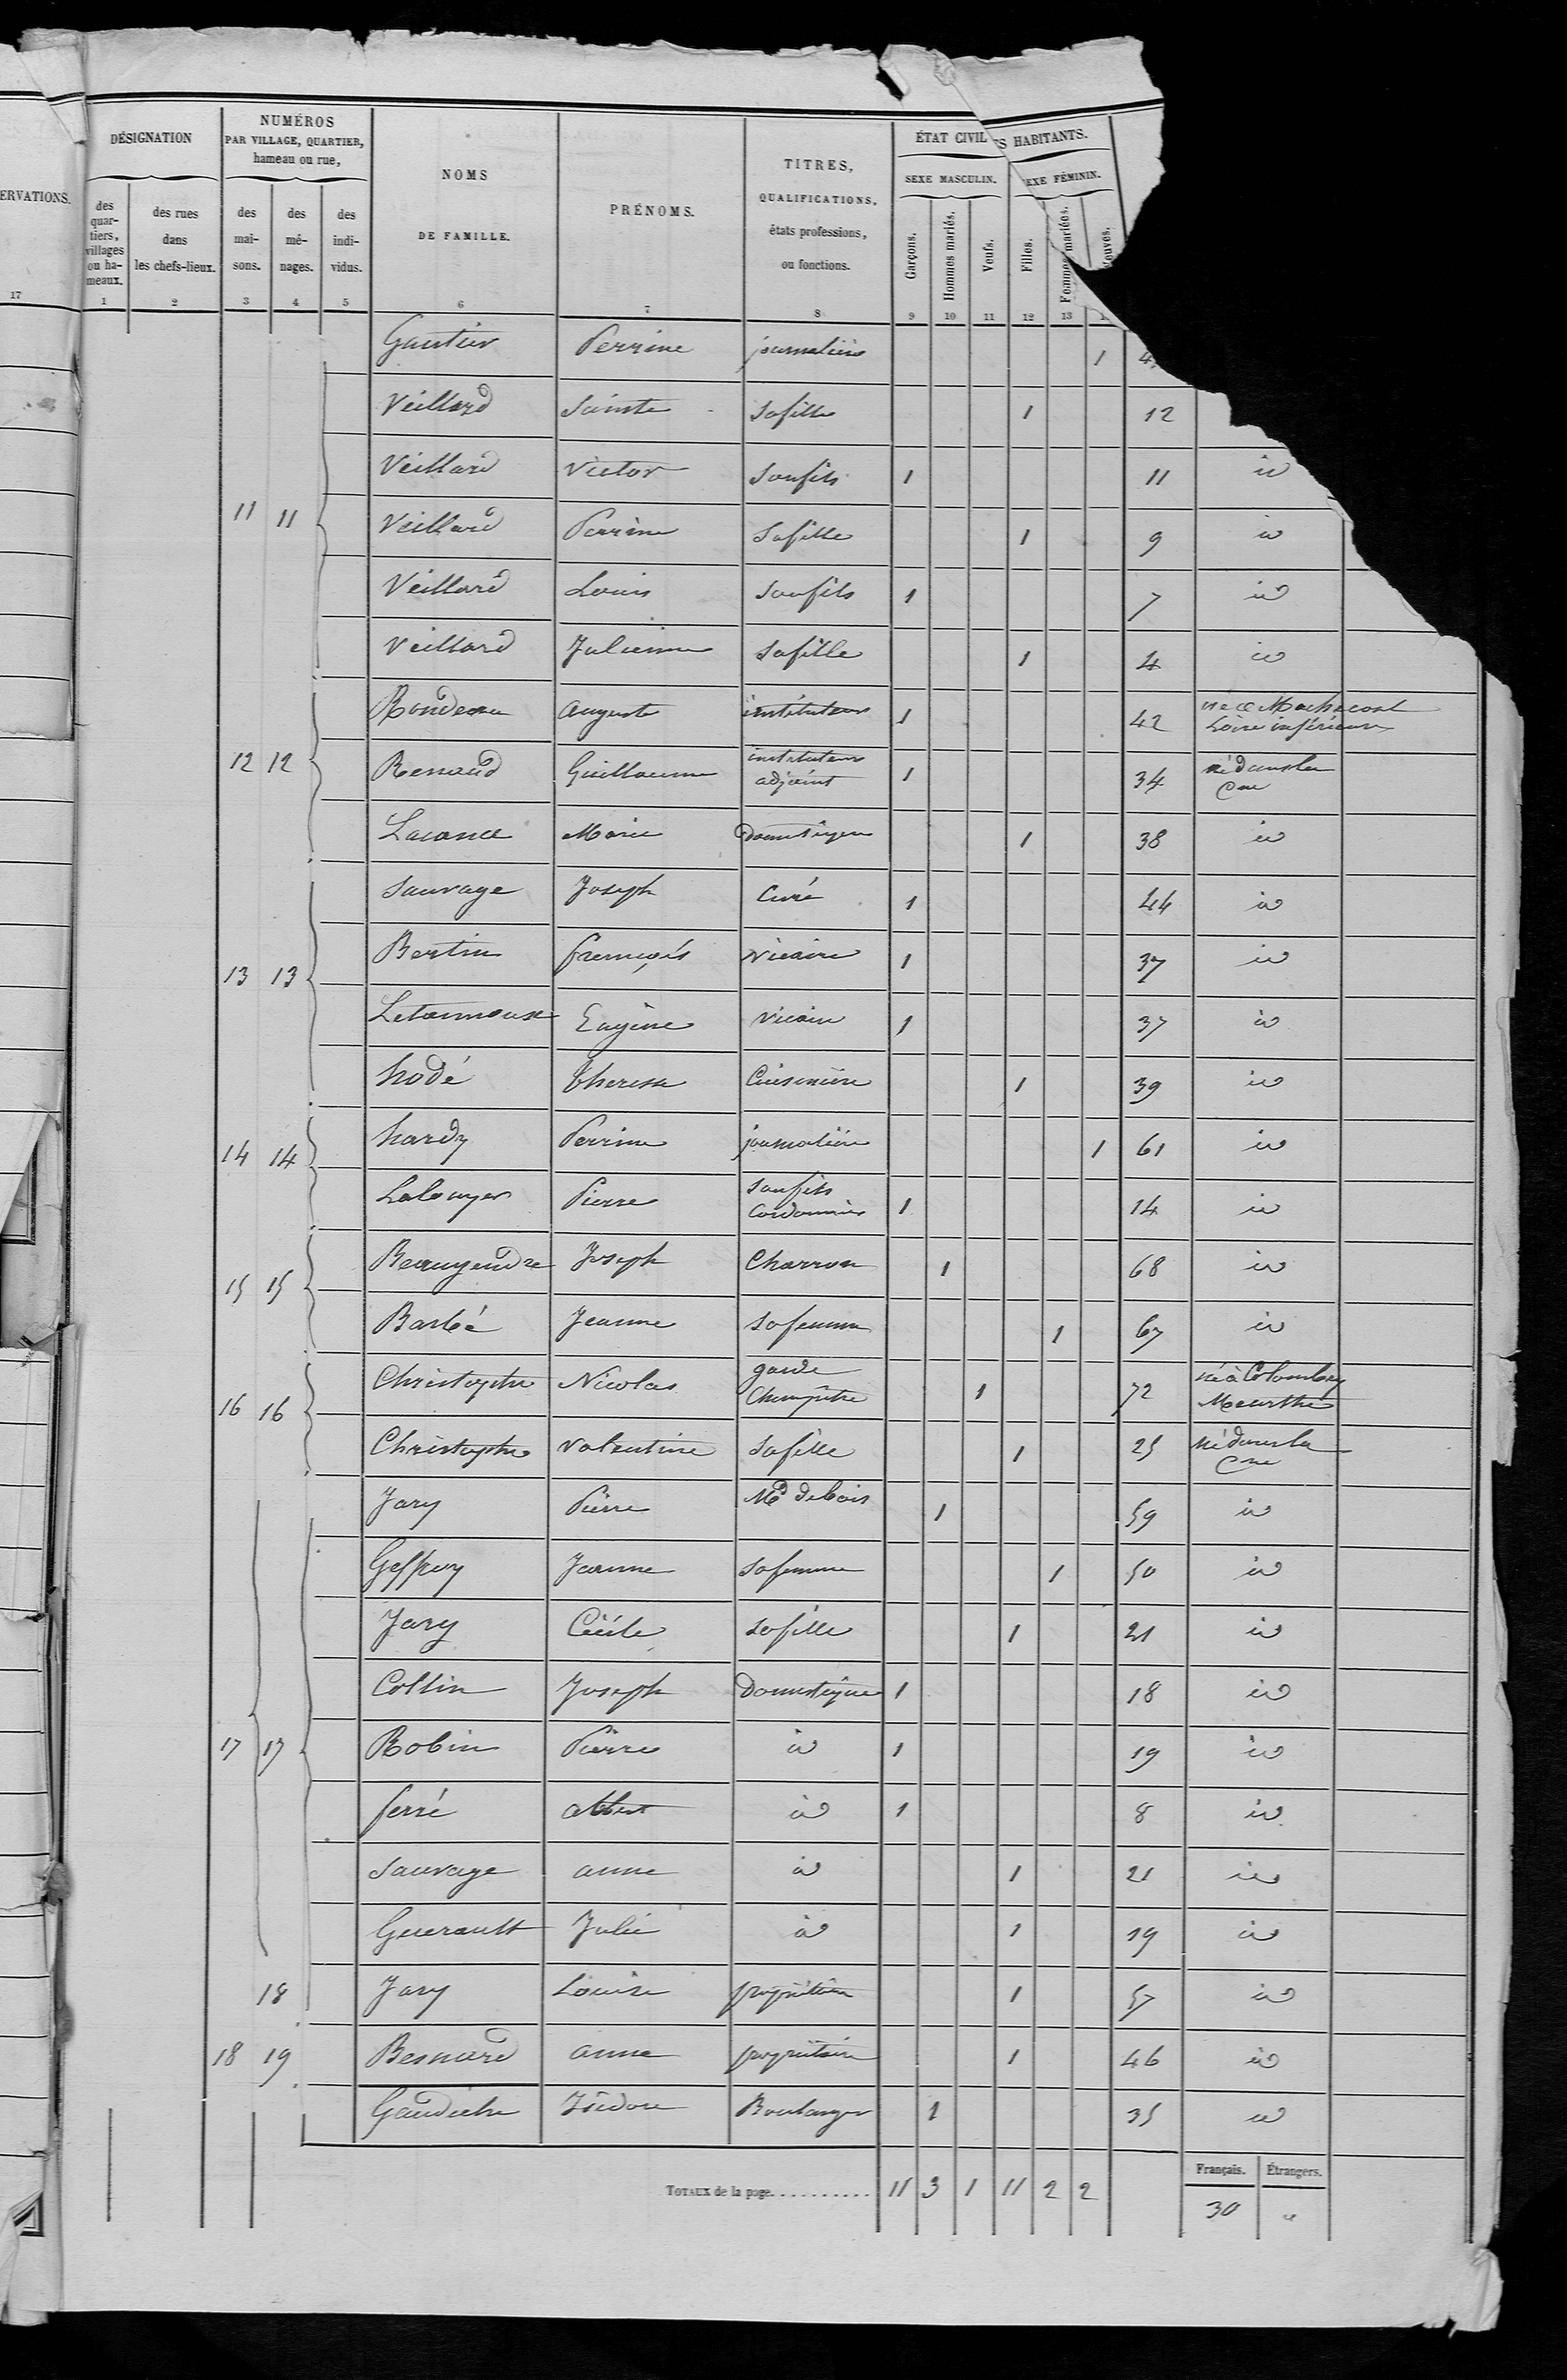 ERVATIONS.
17
DÉSIGNATION
des quar- tiers, villages ou ha- meaux.
des rues dans les chefs-lieux.
NUMÉROS
PAR VILLAGE, QUARTIER,
hameau ou rue,
des mai- sons.
des mé- nages.
des indi- vidus.
NOMS
DE FAMILLE.
PRÉNOMS.
TITRES,
QUALIFICATIONS,
états professions,
ou fonctions.
ÉTAT CIVIL
S HABITANTS.
SEXE MASCULIN.
EXE FÉMININ.
Garçons.
Hommes mariés.
Veufs.
Filles.
Femmes mariées.
euves.
1 2 3 4 5 6 7 8 9 10 11 12 13
Gautier Perrine journalière 1 4
Veillard Sainte sa fille 1 12
Veillard Victor son fils 1 11 id
11 11 Veillard Perrine sa fille 1 9 id
Veillard Louis son fils 1 7 id
Veillard Julienne sa fille 1 4 id
Rondeau auguste instituteur 1 42 né à Machecoul
Loire inférieure
12 12 Renaud Guillaume instituteur
adjoint 1 34 né dans la
Cne
Lacance Marie domestique 1 38 id
Sauvage Joseph Curé 1 44 id
Bertin françois vicaire 1 37 id
13 13
Eugène vicaire 1 37 id
hodé therese Cuisinière 1 39 id
hardy Perrine journalière 1 61 id
14 14
Lalouyer Pierre son fils
Cordonnier 1 14 id
Beaugendre Joseph Charron 1 68 id
15 15
Barbé Jeanne sa femme 1 67 id
Christophe Nicolas garde
Champêtre 1 72 né à Colombey
Meurthe
16 16
Christophe valentine sa fille 1 25 né dans la
Cne
Jary Pierre Md de bois 1 59 id
Geffroy Jeanne sa femme 1 50 id
Jary Cécile sa fille 1 21 id
Collin Joseph Domestique 1 18 id
17 17 Robin Pierre id 1 19 id
ferré albert id 1 8 id
Sauvage anne id 1 21 id
Guerault Julie id 1 19 id
18 Jary Louise propriétaire 1 57 id
18 19 Besnard anne propriétaire 1 46 id
Gaudiche Isidore Boulanger 1 35 id
TOTAUX de la page. . . . . . . . . . 11 3 1 11 2 2
Français. Étrangers.
30 "